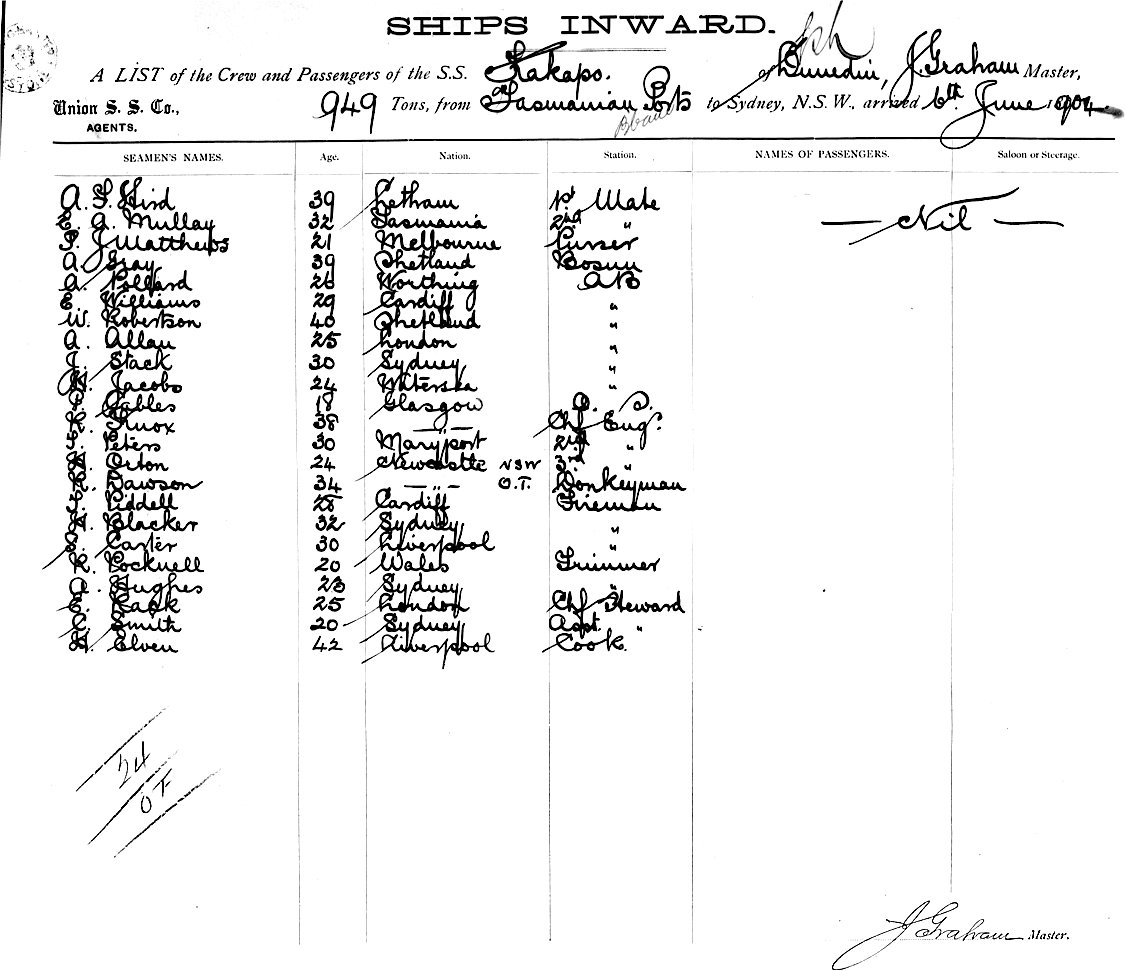 SHIPS INWARD.
A LIST of the Crew and Passengers of the S.S. Kakapo. of Dunedin, J. Graham Master,
Union S. S. Co., 949 Tons, from Tasmanian Ports to Sydney, N.S.W., arrived 6th June 1904
AGENTS.
SEAMEN'S NAMES. Age. Nation. Station. NAMES OF PASSENGERS. Saloon or Steerage.
A. S. Hird 39 Letham 1st Mate
E. A. Mullay 32 Tasmania 2nd " — Nil —
P. J. Matthews 21 Melbourne Purser
A. Gray 39 Shetland Bosun
A. Pollard 26 Worthing AB
E. Williams 29 Cardiff "
W. Robertson 40 Shetland "
A. Allan 25 London "
J. Stack 30 Sydney "
H. Jacobs 24 "
P. Gables 18 Glasgow O. S.
R. Knox 38 — " — Chf Eng.
J. Peters 30 Maryport 2nd "
H. Orton 24 Newcastle NSW 3rd "
R. Dawson 34 — " — O.T. Donkeyman
J. Liddell 28 Cardiff Fireman
H. Blacker 32 Sydney "
S. Carter 30 Liverpool "
R. Pocknell 20 Wales Trimmer
A. Hughes 23 Sydney "
E. Rack 25 London Chf Steward
C. Smith 20 Sydney Asst. "
H. Elven 42 Liverpool Cook.
24
OT
J Graham Master.